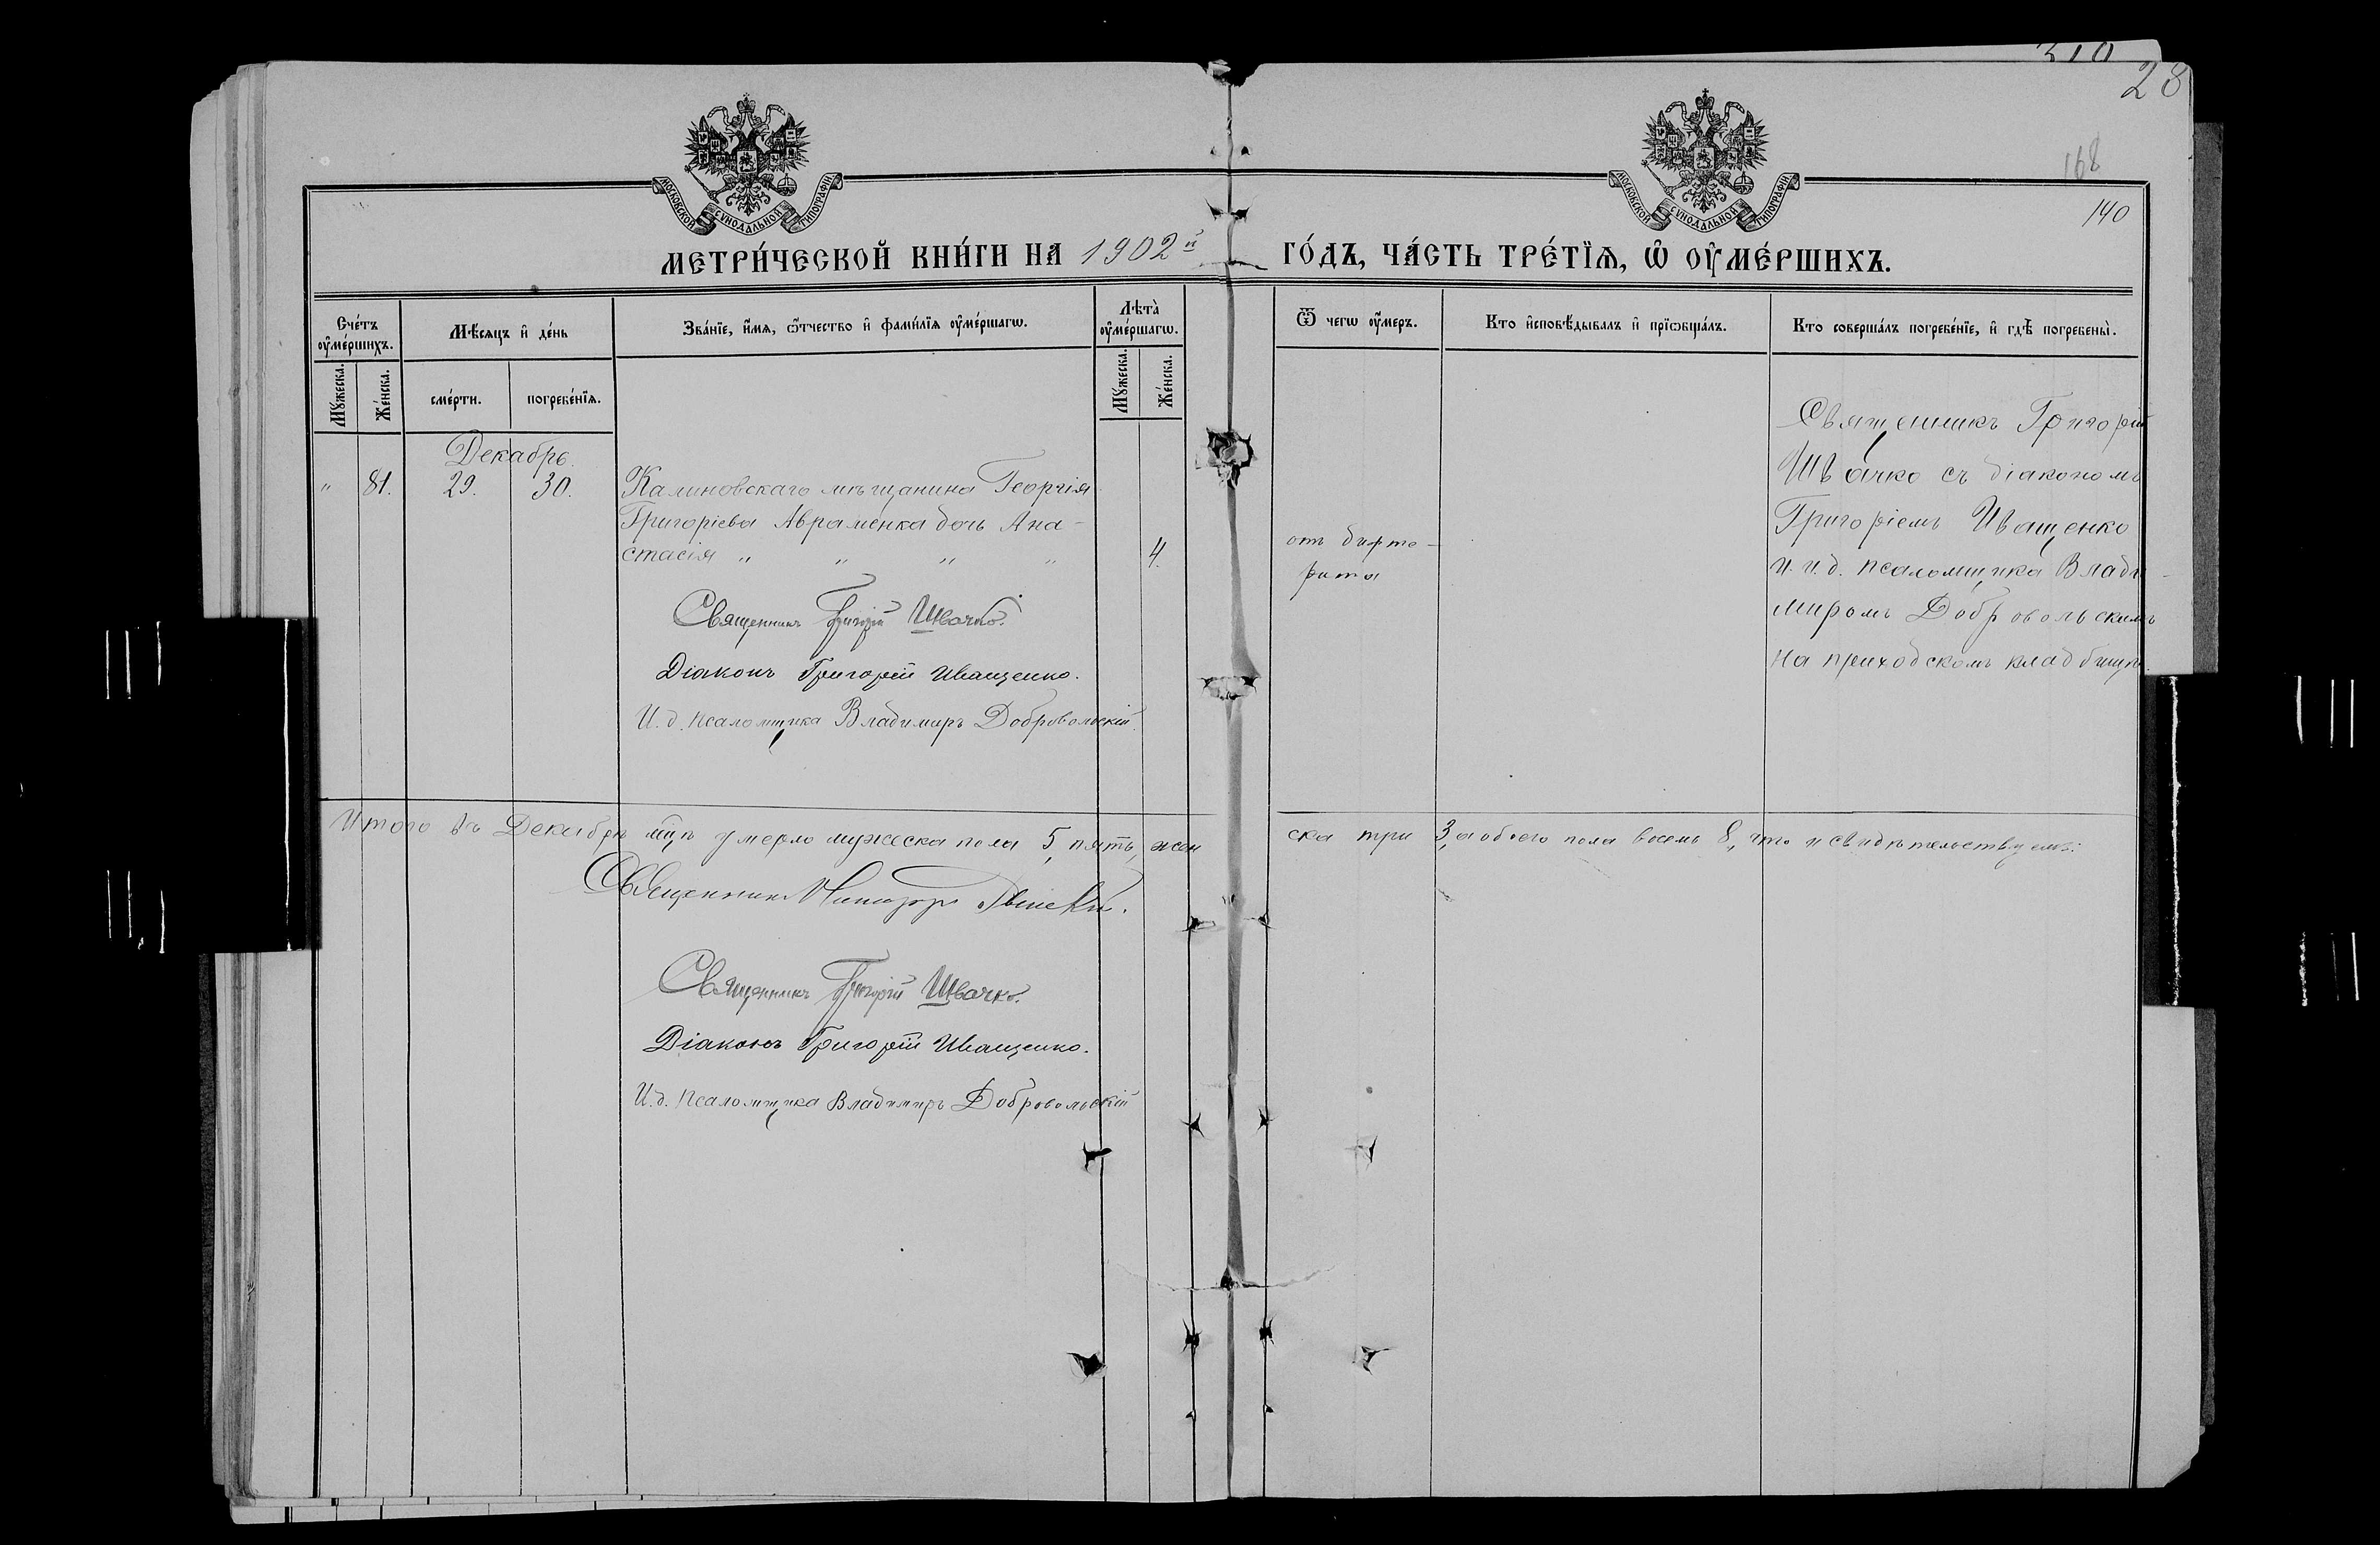 310
28
168
140
МОСКОВСКОЙ СѴНОДАЛЬНОЙ ТИПОГРАФІИ
МОСКОВСКОЙ СѴНОДАЛЬНОЙ ТИПОГРАФІИ
МЕТРИ́ЧЕСКОЙ КНИ́ГИ НА 1902й ГО́ДЪ, ЧА́СТЬ ТРЕ́ТЇѦ, Ѡ҆ ОУ҆МЕ́РШИХЪ.
Сче́тъ оу҆ме́ршихъ.
Мѣ́сяцъ и҆ де́нь
Зва́нїе, и҆́мя, ѻ҆́тчество и҆ фами́лїя оу҆ме́ршагѡ.
Лѣта̀ оу҆ме́ршагѡ.
Ѿ чегѡ оу҆́меръ.
Кто и҆сповѣ́дывалъ и҆ прїѡбща́лъ.
Кто соверша́лъ погребе́нїе, и҆ гдѣ̀ погребены̀.
Мꙋ́жеска.
Же́нска.
сме́рти.
погребе́нїя.
Мꙋ́жеска.
Же́нска.
Декабрь.
" 81. 29. 30. Калиновскаго мѣщанина Георгія
Григоріева Авраменка дочь Ана-
стасія " " " " 4.
отъ дифте-
рита
Священникъ Григорій
Швачко съ діакономъ
Григоріемъ Иващенко
и и. д. псаломщика Влади-
миромъ Добровольскимъ
на приходскомъ кладбищѣ.
Священникъ Григорій Швачко.
Діаконъ Григорій Иващенко.
И. д. псаломщика Владимиръ Добровольскій
Итого въ Декабрѣ мцѣ умерло мужеска пола 5, пять, жен ска три 3, а обоего пола восемь 8, что и свидѣтельствуемъ:
Священникъ
Священникъ Григорій Швачко.
Діаконъ Григорій Иващенко.
И. д. псаломщика Владимиръ Добровольскій